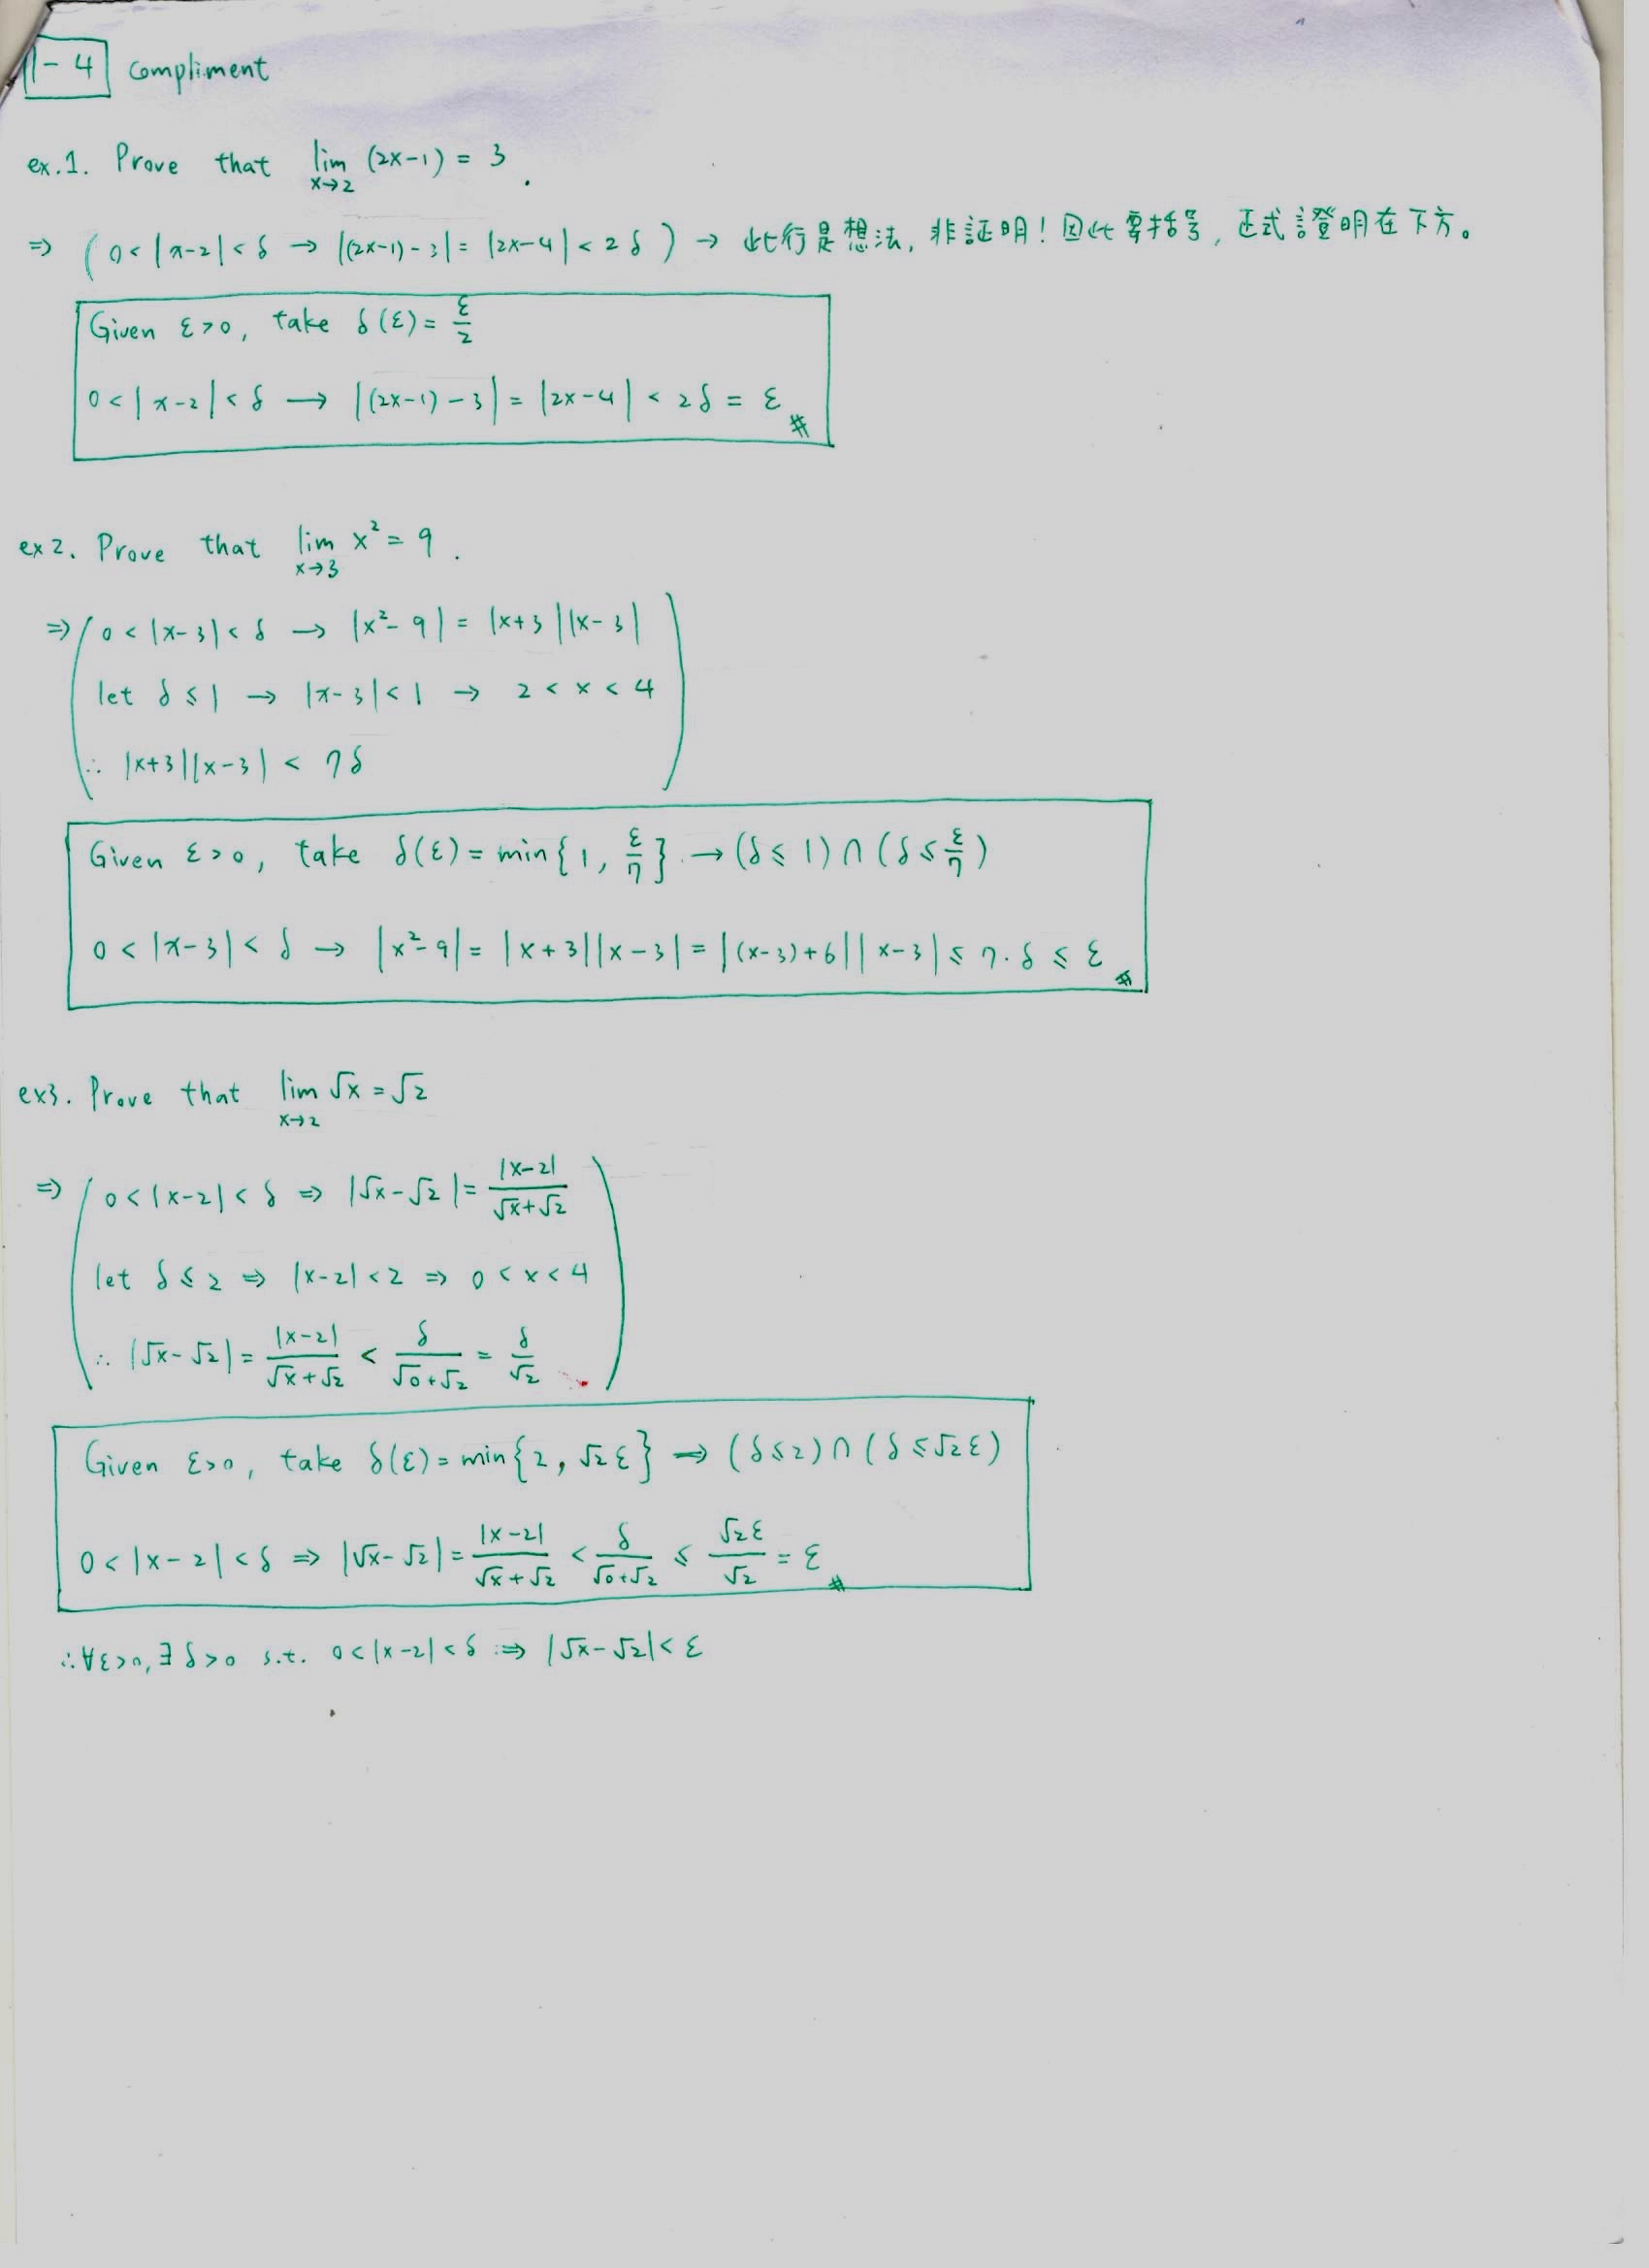 1-4 compliment
ex.1. Prove that lim_{x→2} (2x-1) = 3.
⇒ (0<|x-2|<δ → |(2x-1)-3|=|2x-4|<2δ) → 此行是想法, 非証明! 因此要括号, 正式證明在下方。
Given ε>0, take δ(ε)=ε/2
0<|x-2|<δ → |(2x-1)-3|=|2x-4|<2δ=ε #
ex2. Prove that lim_{x→3} x²=9.
⇒ (0<|x-3|<δ → |x²-9|=|x+3||x-3|
let δ≤1 → |x-3|<1 → 2<x<4
∴ |x+3||x-3|<7δ)
Given ε>0, take δ(ε)=min{1, ε/7} → (δ≤1)∩(δ≤ε/7)
0<|x-3|<δ → |x²-9|=|x+3||x-3|=|(x-3)+6||x-3|≤7·δ≤ε #
ex3. Prove that lim_{x→2} √x=√2
⇒ (0<|x-2|<δ ⇒ |√x-√2|=|x-2|/(√x+√2)
let δ≤2 ⇒ |x-2|<2 ⇒ 0<x<4
∴ |√x-√2|=|x-2|/(√x+√2)<δ/(√0+√2)=δ/√2)
Given ε>0, take δ(ε)=min{2, √2ε} ⇒ (δ≤2)∩(δ≤√2ε)
0<|x-2|<δ ⇒ |√x-√2|=|x-2|/(√x+√2)<δ/(√0+√2)≤√2ε/√2=ε #
∴∀ε>0, ∃δ>0 s.t. 0<|x-2|<δ ⇒ |√x-√2|<ε